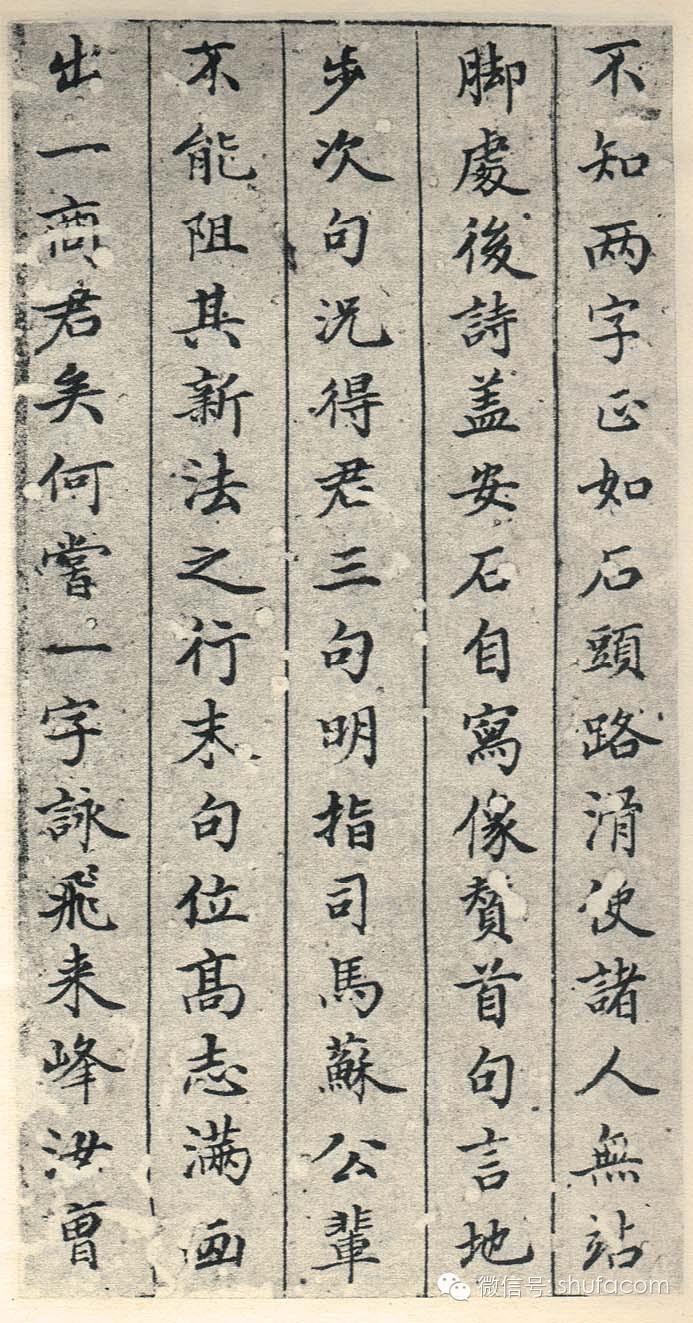 不知两字正如石頭路滑使諸人無站
脚處後詩盖安石自寫像賛首句言地
步次句況得君三句明指司馬蘇公輩
不能阻其新法之行末句位髙志满画
出一商君矣何嘗一字詠飛来峰汝曹
微信号: shufacom